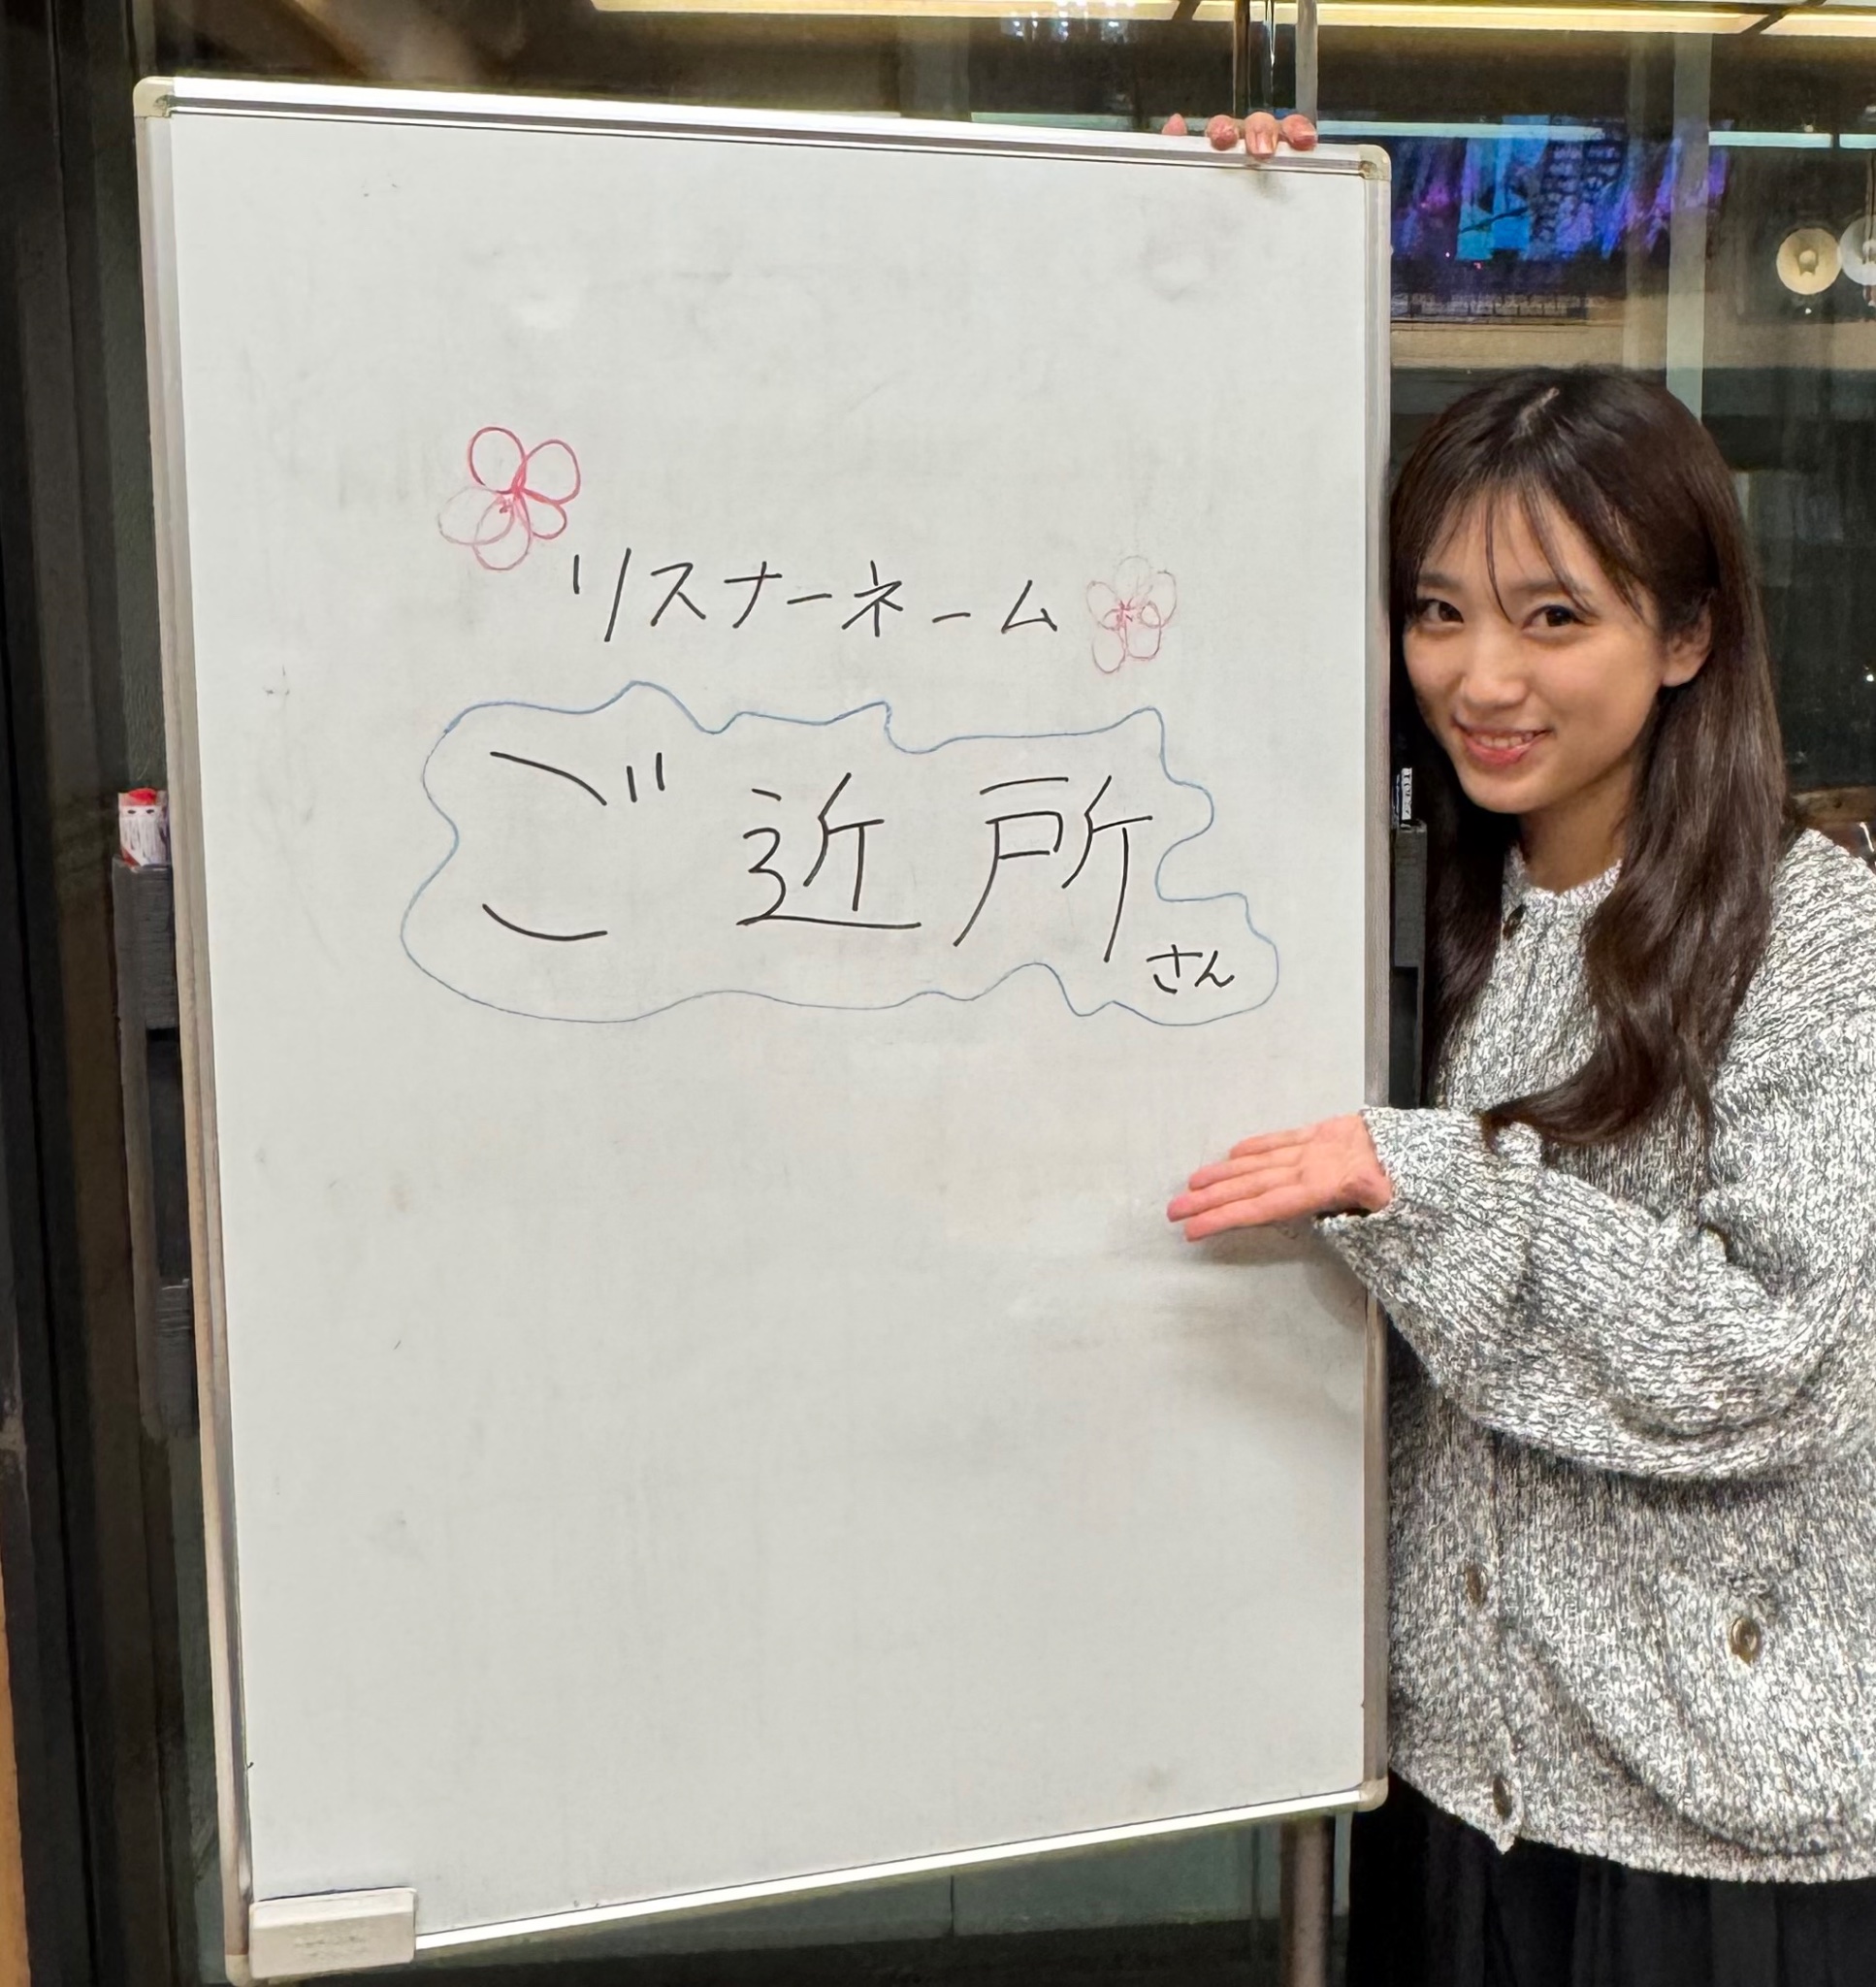 リスナーネーム
ご近所さん